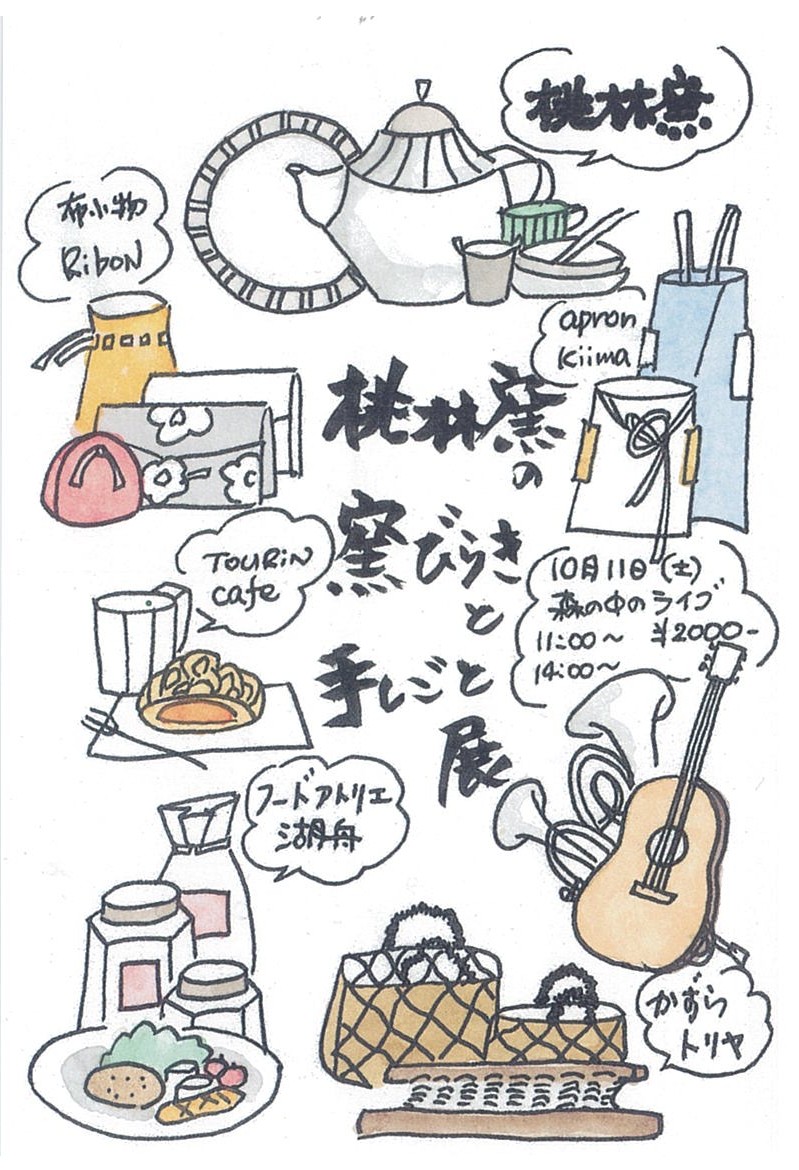 桃林窯
布小物
Ribon
apron
kiima
桃林窯
の
窯びらき
と
手しごと
展
TOURIN
cafe
10月11日(土)
森の中のライブ
11:00~ ¥2000-
14:00~
フードアトリエ
湖舟
かずら
トリヤ